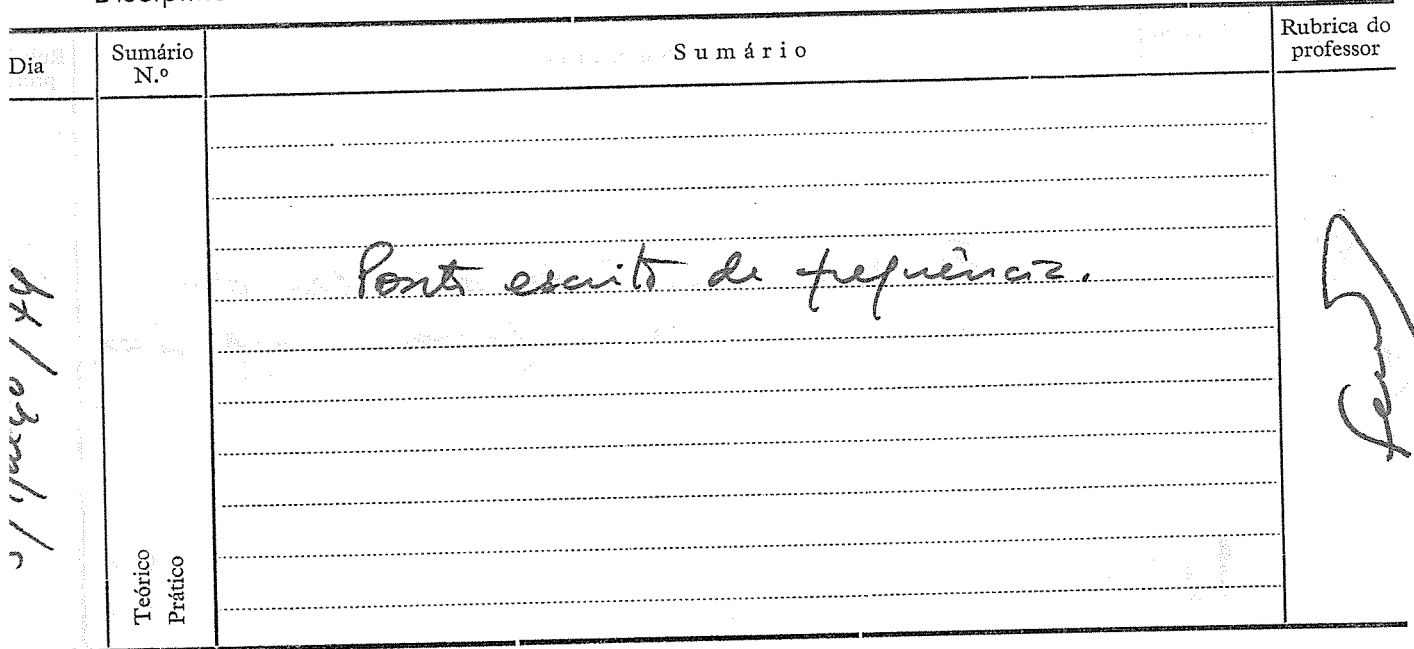 Dia
Sumário
N.º
Sumário
Rubrica do
professor
Ponto escrito de frequência.
Teórico
Prático